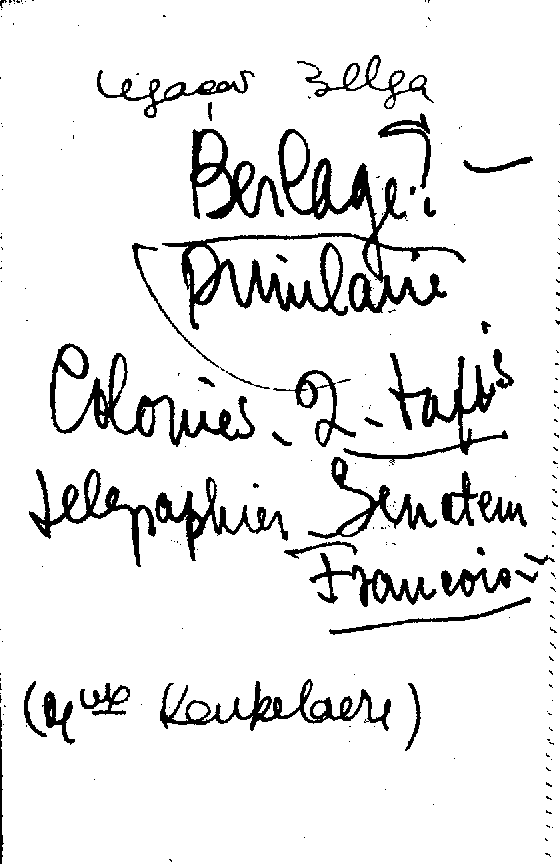 Legaçaõ Belga
Berlage? —
Primlarie
Colonies - 2 - tapis
telegraphier Senateur
Francois
(Mme Keukelaere)